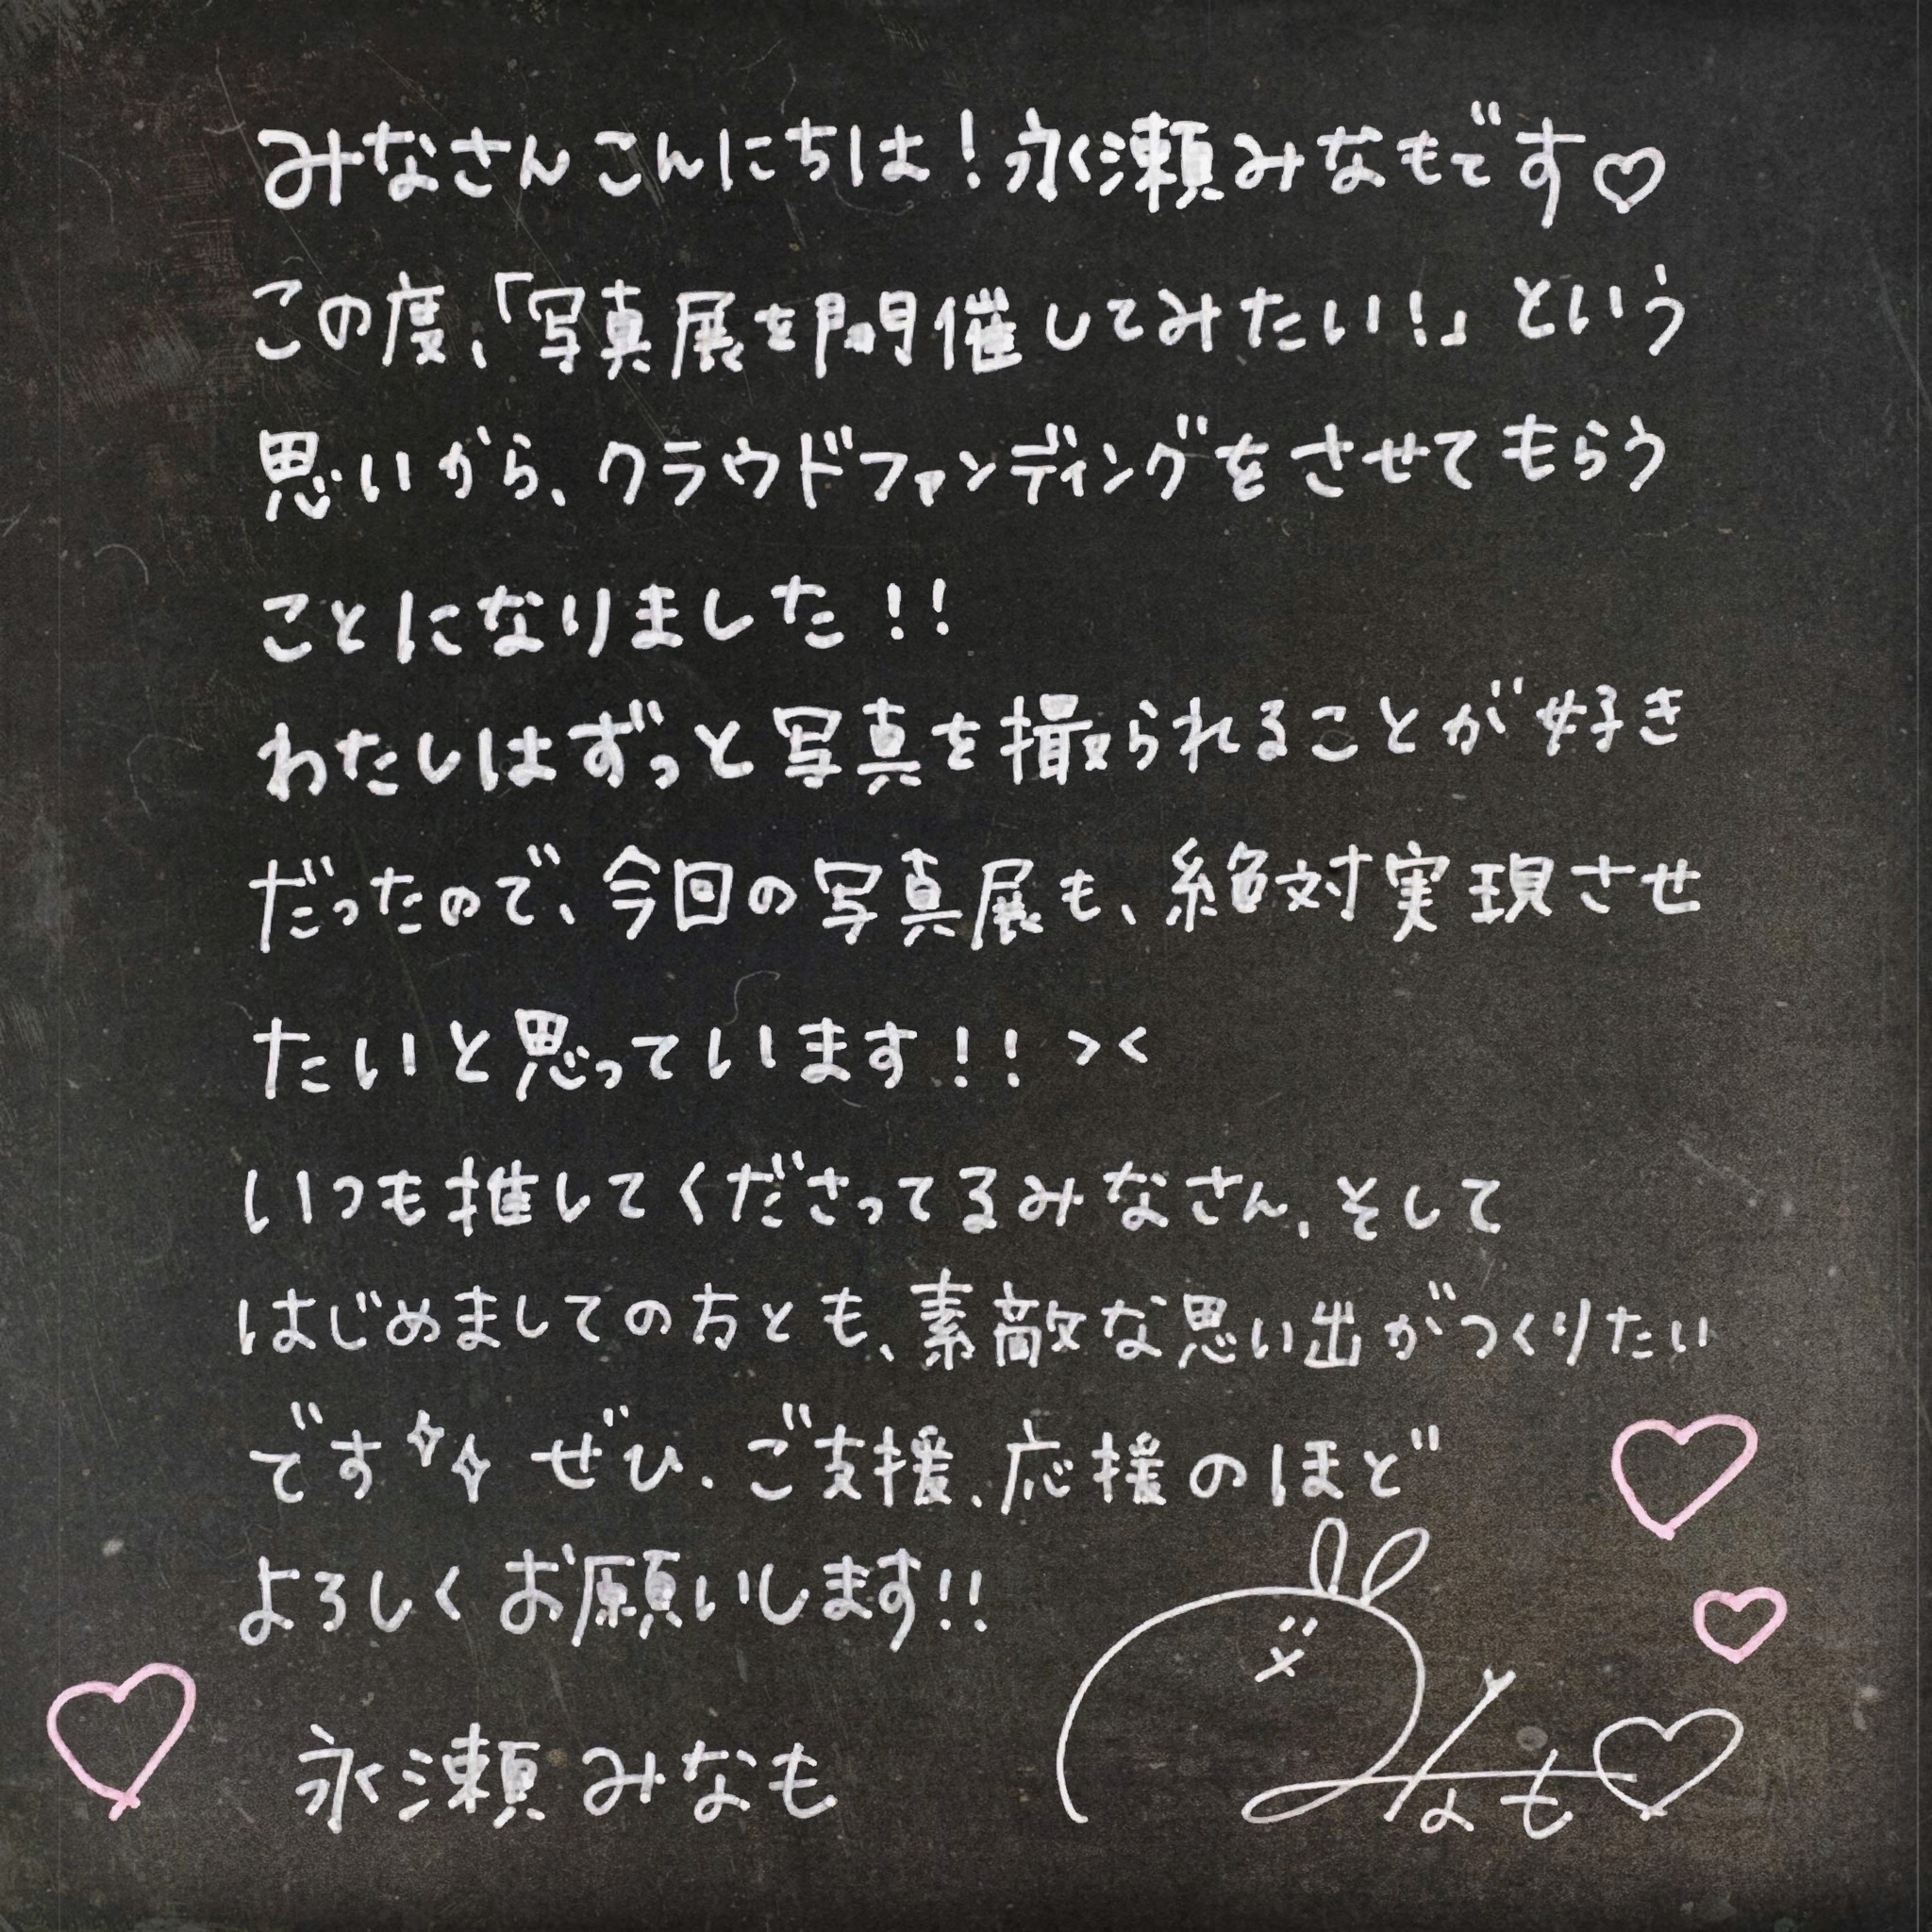 みなさんこんにちは!永瀬みなもです♡
この度、「写真展を開催してみたい!」という
思いから、クラウドファンディングをさせてもらう
ことになりました!!
わたしはずっと写真を撮られることが好き
だったので、今回の写真展も、絶対実現させ
たいと思っています!! ><
いつも推してくださってるみなさん、そして
はじめましての方とも、素敵な思い出がつくりたい
です ぜひ、ご支援、応援のほど
よろしくお願いします!!
永瀬みなも
なも